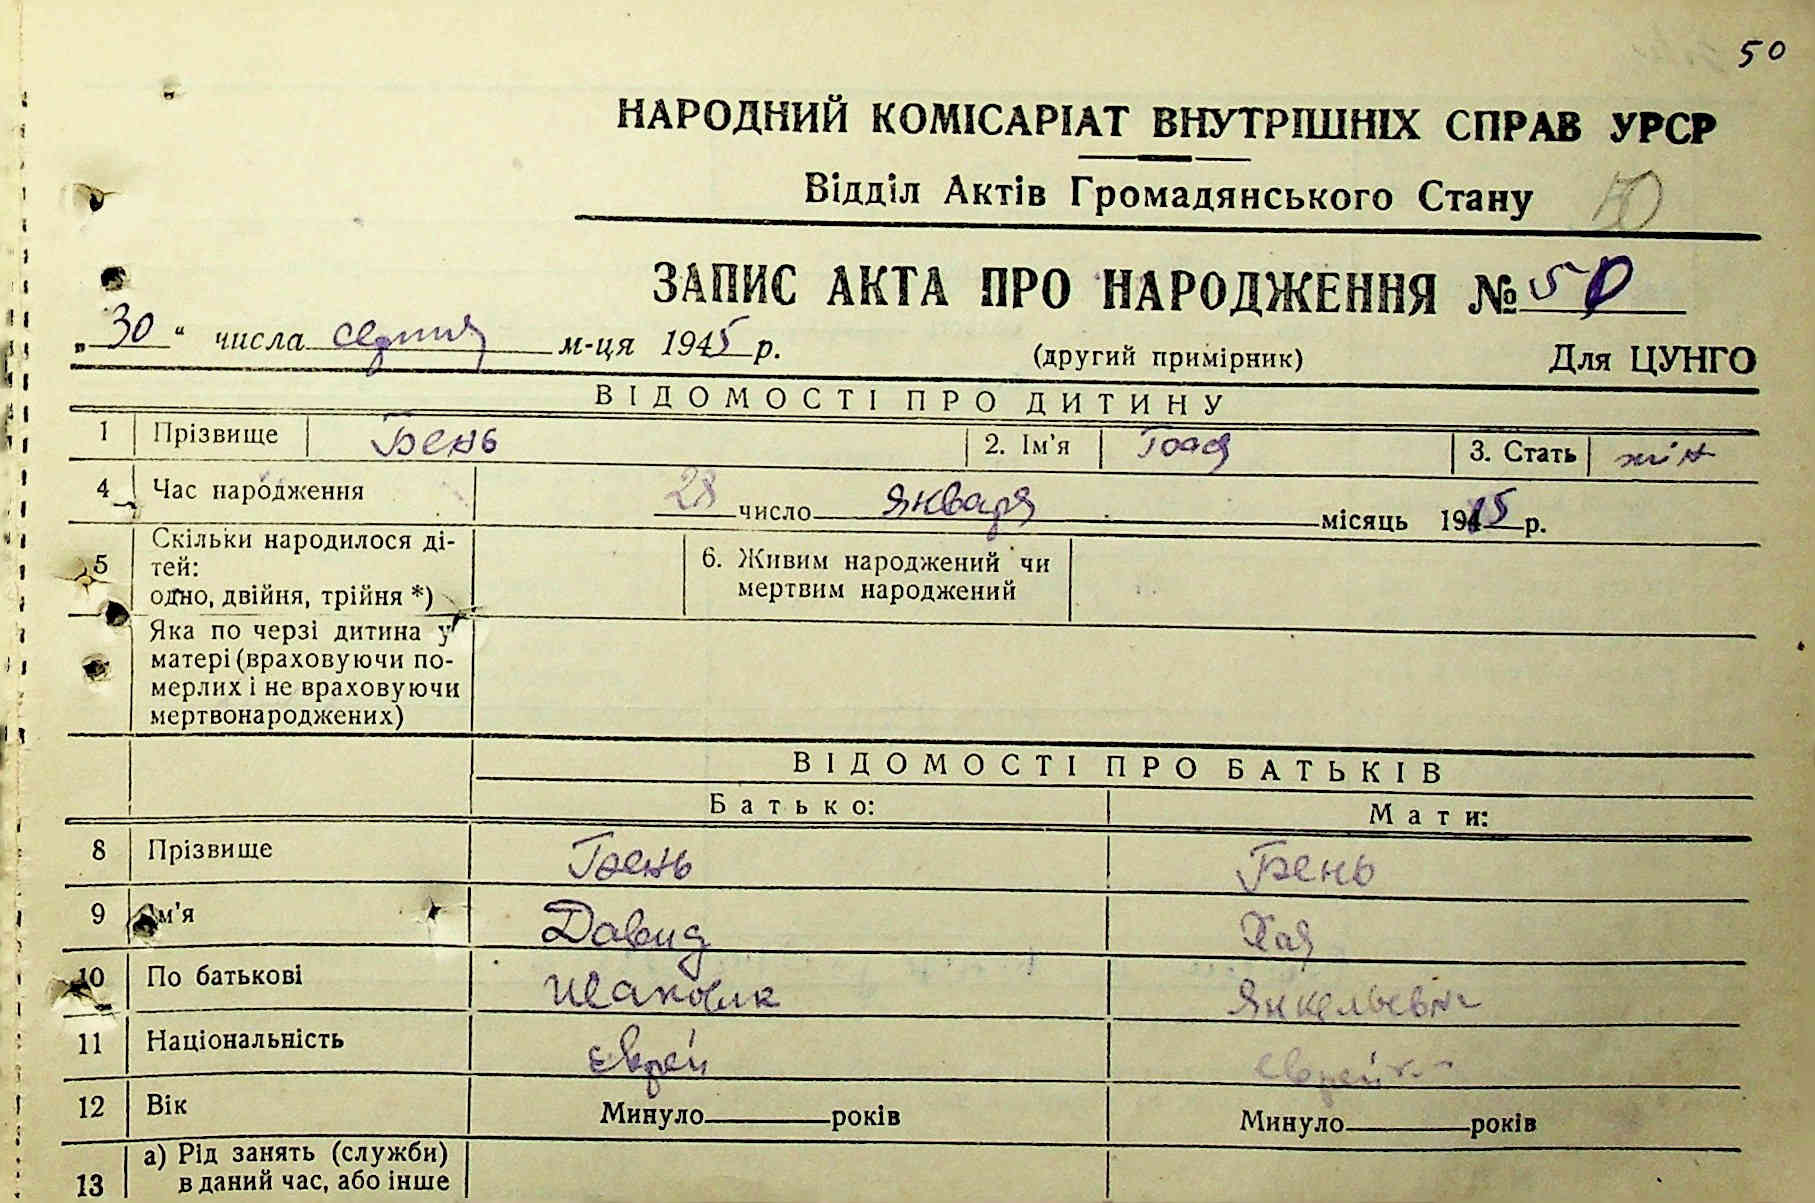 50
НАРОДНИЙ КОМІСАРІАТ ВНУТРІШНІХ СПРАВ УРСР
Відділ Актів Громадянського Стану 50
ЗАПИС АКТА ПРО НАРОДЖЕННЯ № 50
„30“ числа серпня м-ця 1945 р. (другий примірник) Для ЦУНГО
ВІДОМОСТІ ПРО ДИТИНУ
1 Прізвище Бень 2. Ім'я 3. Стать жін
4 Час народження 28 число января місяць 1915 р.
5 Скільки народилося ді-
тей:
одно, двійня, трійня *)
6. Живим народжений чи
мертвим народжений
Яка по черзі дитина у
матері (враховуючи по-
мерлих і не враховуючи
мертвонароджених)
ВІДОМОСТІ ПРО БАТЬКІВ
Батько: Мати:
8 Прізвище Бень Бень
9 Ім'я Давид Хая
10 По батькові Янкельевна
11 Національність Єврей еврейка
12 Вік Минуло років Минуло років
13 а) Рід занять (служби)
в даний час, або інше